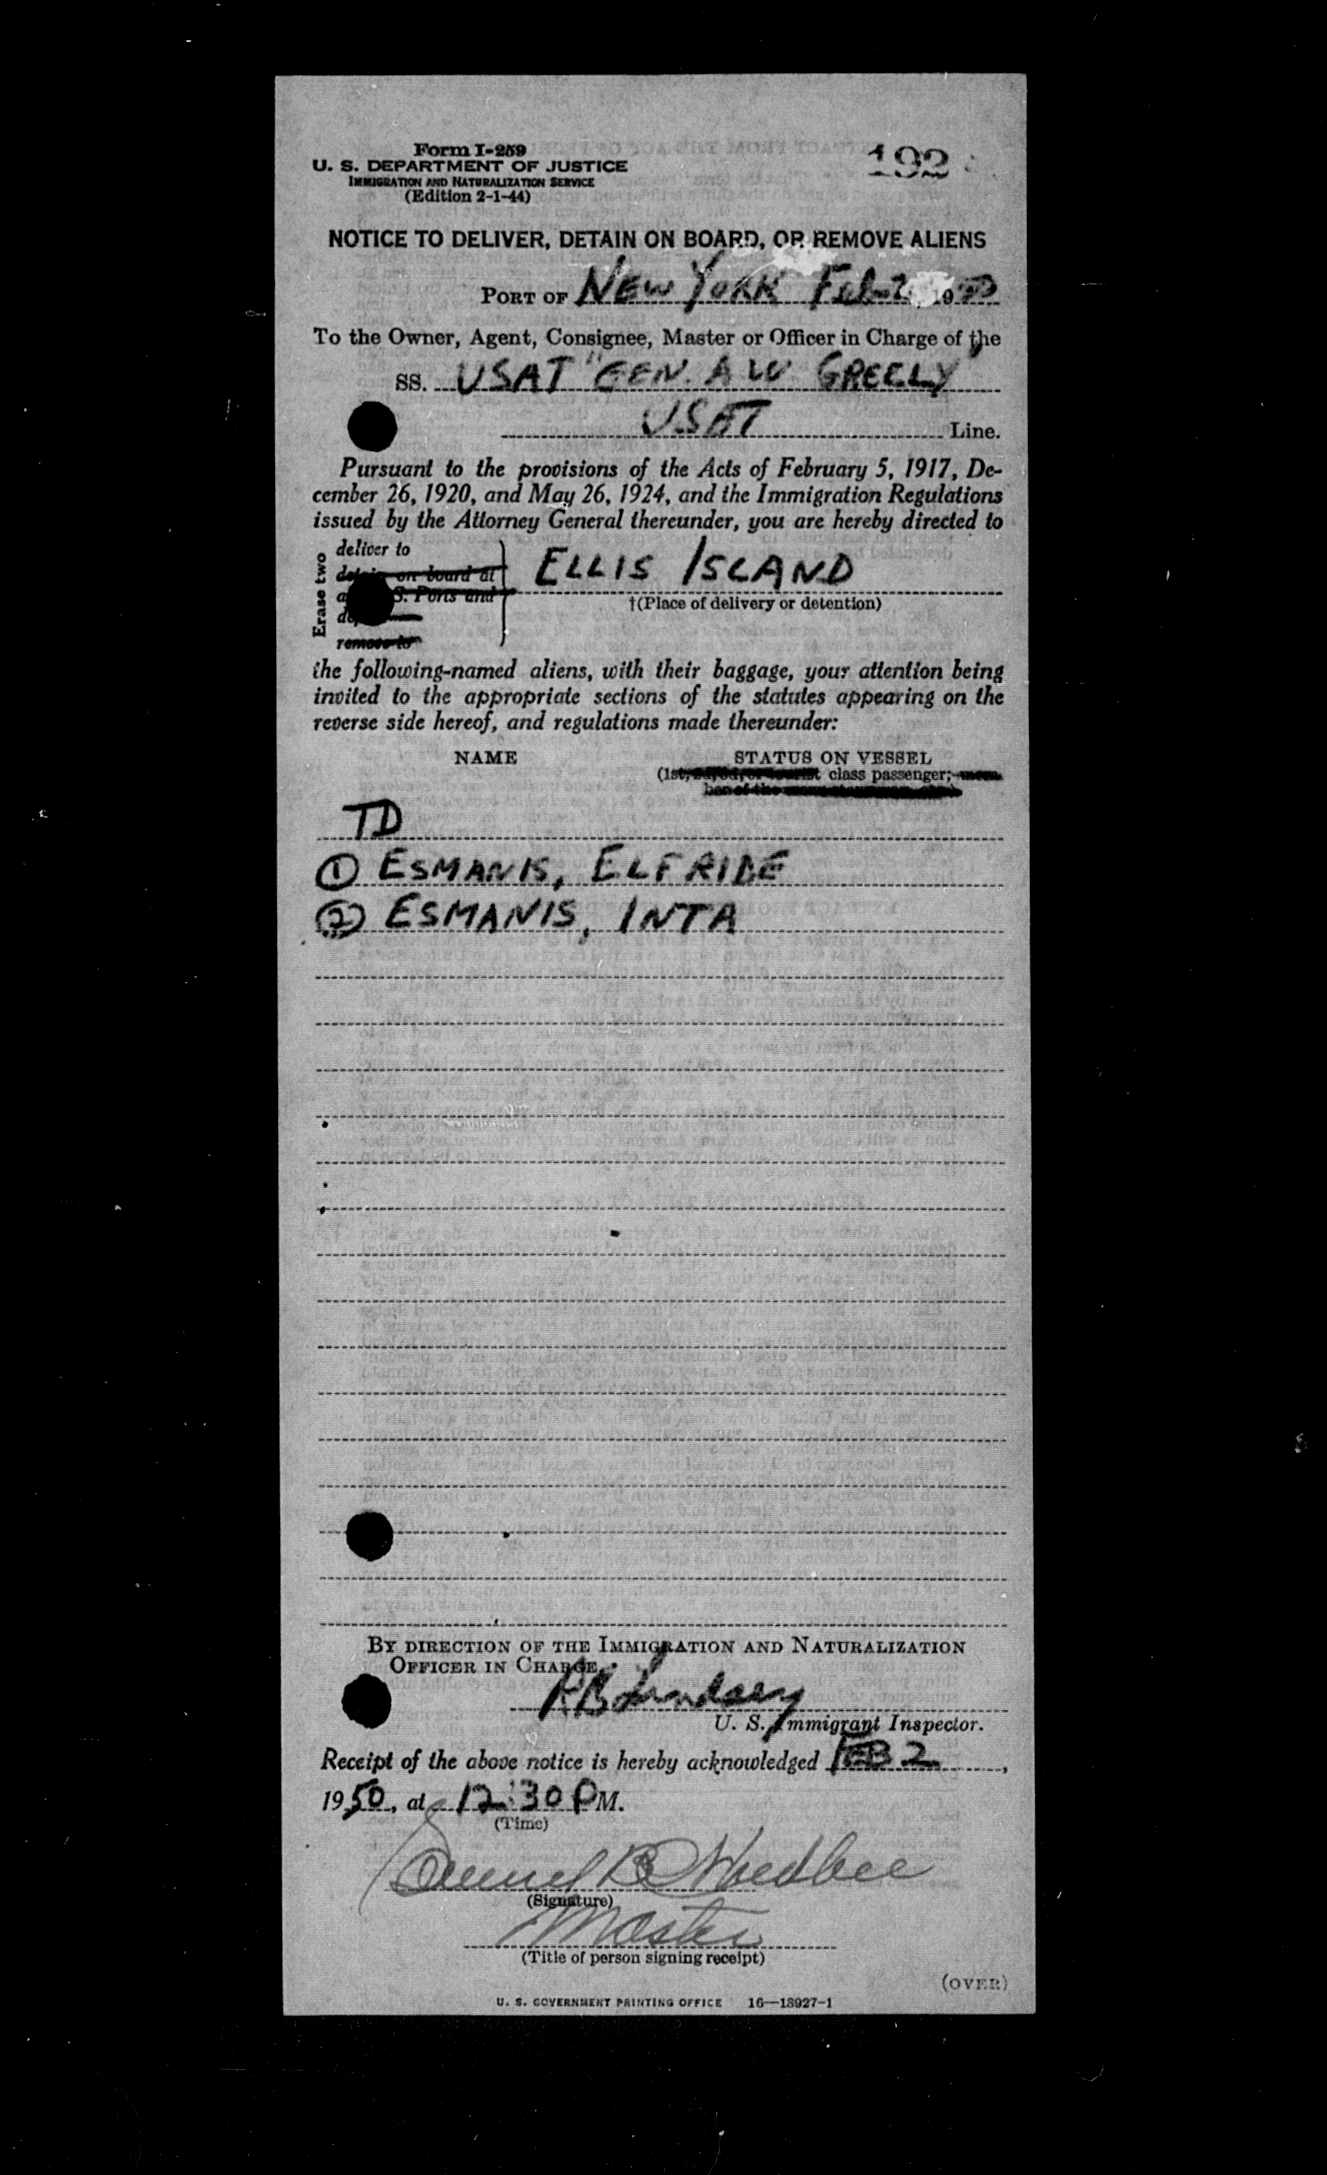 Form I-259
U. S. DEPARTMENT OF JUSTICE
IMMIGRATION AND NATURALIZATION SERVICE
(Edition 2-1-44)
192
NOTICE TO DELIVER, DETAIN ON BOARD, OR REMOVE ALIENS
PORT OF NEW YORK Feb 2, 1950
To the Owner, Agent, Consignee, Master or Officer in Charge of the
SS. USAT "GEN. A W GREELY"
USAT Line.
Pursuant to the provisions of the Acts of February 5, 1917, De-
cember 26, 1920, and May 26, 1924, and the Immigration Regulations
issued by the Attorney General thereunder, you are hereby directed to
Erase two
deliver to
on board at
S. Ports and
remove to
ELLIS ISLAND
†(Place of delivery or detention)
the following-named aliens, with their baggage, your attention being
invited to the appropriate sections of the statutes appearing on the
reverse side hereof, and regulations made thereunder:
NAME STATUS ON VESSEL
(1st, class passenger;
TD
① ESMANIS, ELFRIDE
② ESMANIS, INTA
BY DIRECTION OF THE IMMIGRATION AND NATURALIZATION
OFFICER IN CHARGE.
RB Lindsey
U. S. Immigrant Inspector.
Receipt of the above notice is hereby acknowledged FEB 2,
1950, at 12:30 PM.
(Time)
B
(Signature)
Master
(Title of person signing receipt)
(OVER)
U. S. GOVERNMENT PRINTING OFFICE 16—18927-1